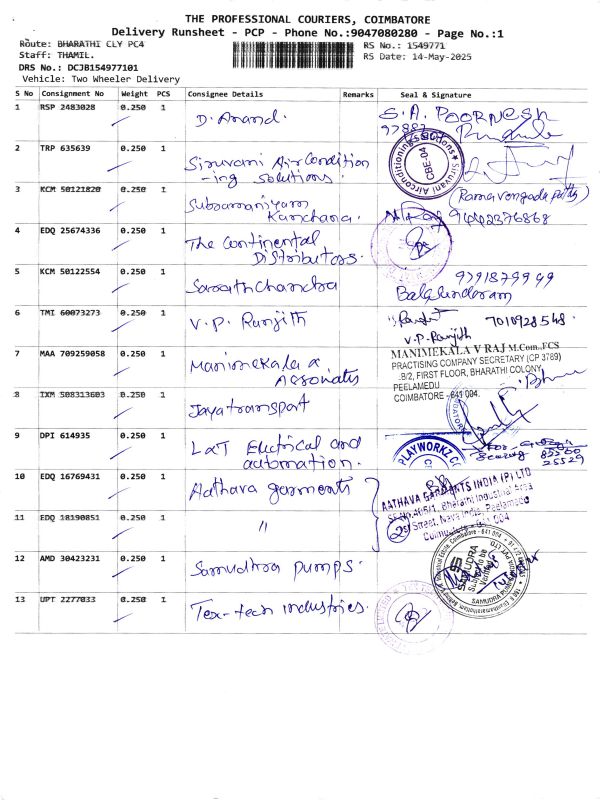 THE PROFESSIONAL COURIERS, COIMBATORE
Delivery Runsheet - PCP - Phone No.:9047080280 - Page No.:1
Route: BHARATHI CLY PC4
Staff: THAMIL.
DRS No.: DCJB154977101
Vehicle: Two Wheeler Delivery
RS No.: 1549771
RS Date: 14-May-2025
S No Consignment No Weight PCS Consignee Details Remarks Seal & Signature
1 RSP 2483028 0.250 1 D. Anand. S.A. POORNESH
2 TRP 635639 0.250 1 Siruvani Air Condition
-ing Solutions.
Siruvani Airconditioning Solutions
CBE-04
3 KCM 50121820 0.250 1 Subramaniyam
Kanchana. 9442376868
4 EDQ 25674336 0.250 1 The Continental
Distributors.
5 KCM 50122554 0.250 1 Sarath Chandra
6 TMI 60073273 0.250 1 V.P. Ranjith 7010928568
V.P. Ranjith
7 MAA 709259058 0.250 1 Manimekala &
Assosiates
MANIMEKALA V RAJ M.Com.,FCS
PRACTISING COMPANY SECRETARY (CP 3769)
FIRST FLOOR, BHARATHI COLONY,
PEELAMEDU
COIMBATORE - 641 004.
8 IXM 508313603 0.250 1 Jayatransport
9 DPI 614935 0.250 1 L&T Electrical and
automation.
PLAYWORKZ
10 EDQ 16769431 0.250 1 Aathava garments
AATHAVA GARMENTS INDIA (P) LTD
Bharathi Industrial Area
Street, Nava India, Peelamedu
11 EDQ 18190851 0.250 1 "
12 AMD 30423231 0.250 1 Samudhra pumps.
SAMUDRA
13 UPT 2277033 0.250 1 Tex-tech industries.